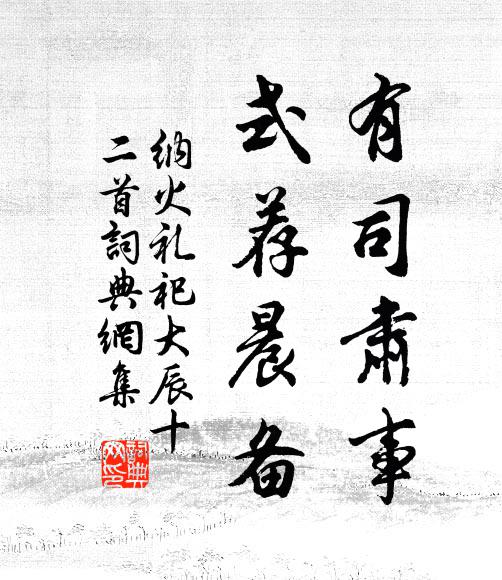 有司肃事
式荐晨备
纳火礼祀大辰十
二首詞典網集
詞典